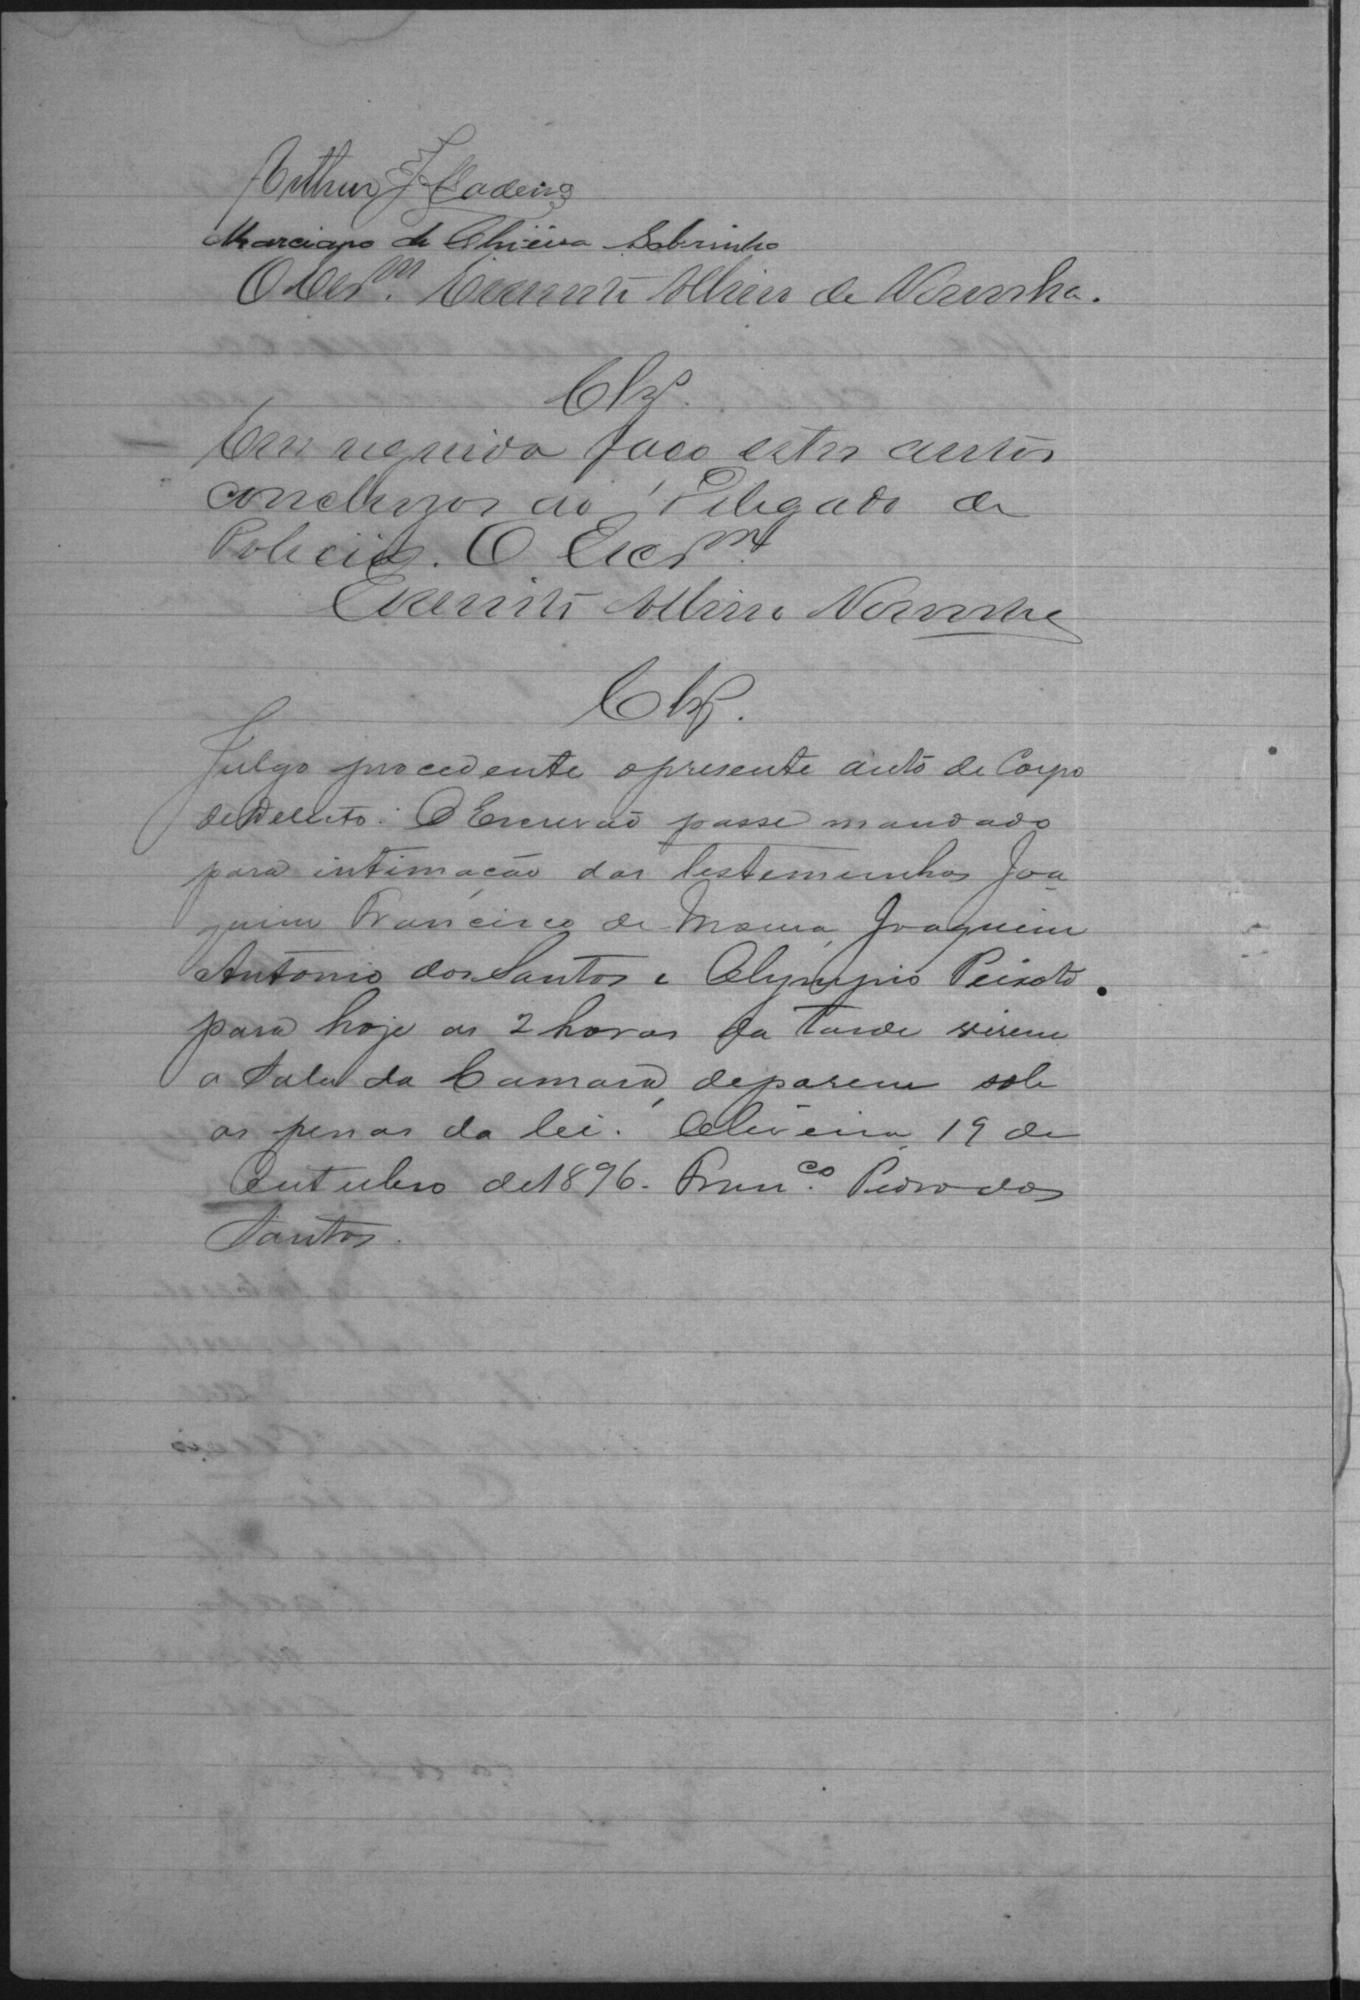 Arthur F. Madeira
Marciano de Oliveira Sobrinho
O Escr.m Albino de Noronha.
Clz.os
Em seguida faço estes autos
concluzos ao Delegado de
Policia. O Escr.m
Albino Noronha
Clz.
Julgo procedente o presente auto de Corpo
de Delicto. O Escrivaõ passe mandado
para intimação das testemunhas Joa
quim Francisco de Moura, Joaquim
Antonio dos Santos e Olympio Peixoto
para hoje as 2 horas da tarde virem
a Sala da Camara, deporem sob
as penas da lei. Oliveira, 19 de
Outubro de 1896. Fran.co Pedro dos
Santos.